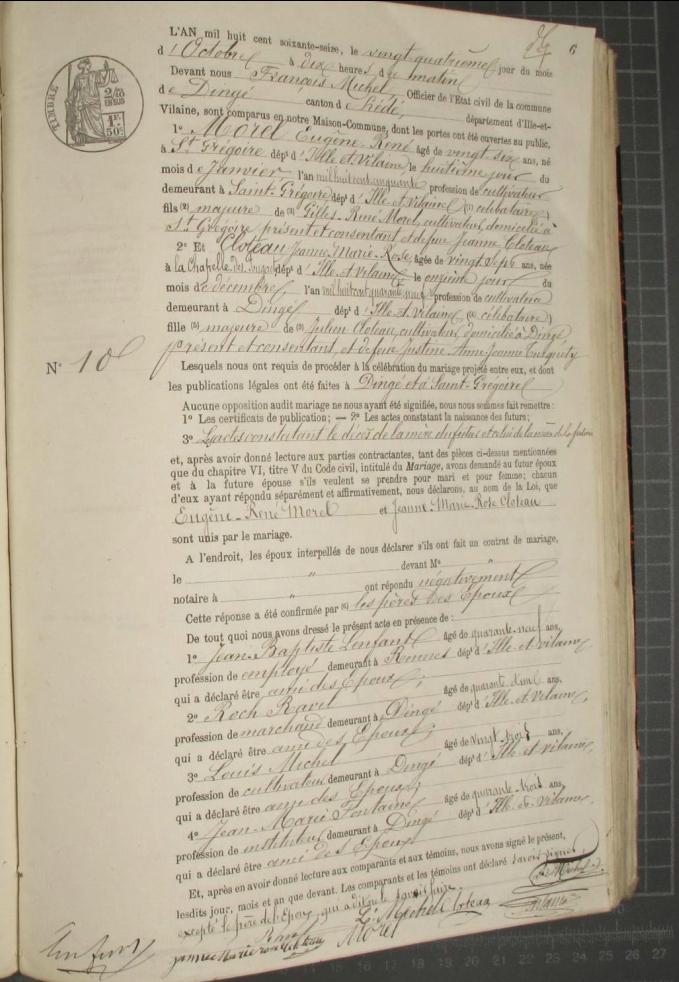 6
L'AN mil huit cent soixante-seize, le vingt quatrième jour du mois
d'Octobre à dix heures du matin
Devant nous François Michel, Officier de l'Etat civil de la commune
de Dingé canton de Hédé, département d'Ille-et-
Vilaine, sont comparus en notre Maison-Commune, dont les portes ont été ouvertes au public,
1° Morel Eugène-René âgé de vingt six ans, né
à St Grégoire dépt d'Ille et Vilaine, le huitième jour du
mois de Janvier l'an mil huit cent cinquante profession de cultivateur
demeurant à Saint-Grégoire dépt d'Ille et Vilaine (1) célibataire
fils (2) majeure de (3) Gilles-René Morel, cultivateur, domicilié à
St Grégoire présent et consentant et de feue Jeanne Cloteau
2° Et Cloteau Jeanne-Marie-Rose, âgée de vingt sept ans, née
à la Chapelle des Fougeretz dépt d'Ille et Vilaine, le onzième jour du
mois de décembre l'an mil huit cent quarante neuf profession de cultivatrice
demeurant à Dingé dépt d'Ille et Vilaine (4) célibataire
fille (5) majeure de (3) Julien Cloteau, cultivateur, domicilié à Dingé
N° 10
présent et consentant, et de feue Justine Anne Jeanne
Lesquels nous ont requis de procéder à la célébration du mariage projeté entre eux, et dont
les publications légales ont été faites à Dingé et à Saint-Grégoire
Aucune opposition audit mariage ne nous ayant été signifiée, nous nous sommes fait remettre :
1° Les certificats de publication ; — 2° Les actes constatant la naissance des futurs ;
3° Les actes constatant le décès de la mère du futur et celui de la mère de la future
et, après avoir donné lecture aux parties contractantes, tant des pièces ci-dessus mentionnées
que du chapitre VI, titre V du Code civil, intitulé du Mariage, avons demandé au futur époux
et à la future épouse s'ils veulent se prendre pour mari et pour femme ; chacun
d'eux ayant répondu séparément et affirmativement, nous déclarons, au nom de la Loi, que
Eugène-René Morel et Jeanne-Marie-Rose Cloteau
sont unis par le mariage.
A l'endroit, les époux interpellés de nous déclarer s'ils ont fait un contrat de mariage,
le " devant Me "
notaire à " ont répondu négativement
Cette réponse a été confirmée par (6) les pères des Epoux
De tout quoi nous avons dressé le présent acte en présence de :
1° Jean-Baptiste Lenfant âgé de quarante-neuf ans,
profession de employé demeurant à Rennes dépt d'Ille et Vilaine,
qui a déclaré être ami des Epoux ;
2° Roch Ravel âgé de quarante deux ans,
profession de marchand demeurant à Dingé dépt d'Ille et Vilaine,
qui a déclaré être ami des Epoux ;
3° Louis Michel âgé de vingt trois ans,
profession de cultivateur demeurant à Dingé dépt d'Ille et Vilaine,
qui a déclaré être ami des Epoux ;
4° Jean-Marie Fontaine âgé de quarante-trois ans,
profession de instituteur demeurant à Dingé dépt d'Ille et Vilaine,
qui a déclaré être ami des Epoux
Et, après en avoir donné lecture aux comparants et aux témoins, nous avons signé le présent,
lesdits jour, mois et an que devant. Les comparants et les témoins ont déclaré savoir signer
excepté le père de l'Epoux qui a dit ne le savoir faire.
Ls Michel Cloteau
Lenfant Jeanne Marie Rose Cloteau Morel
TIMBRE
1F.
50c
17 18 19 20 21 22 23 24 25 26 27